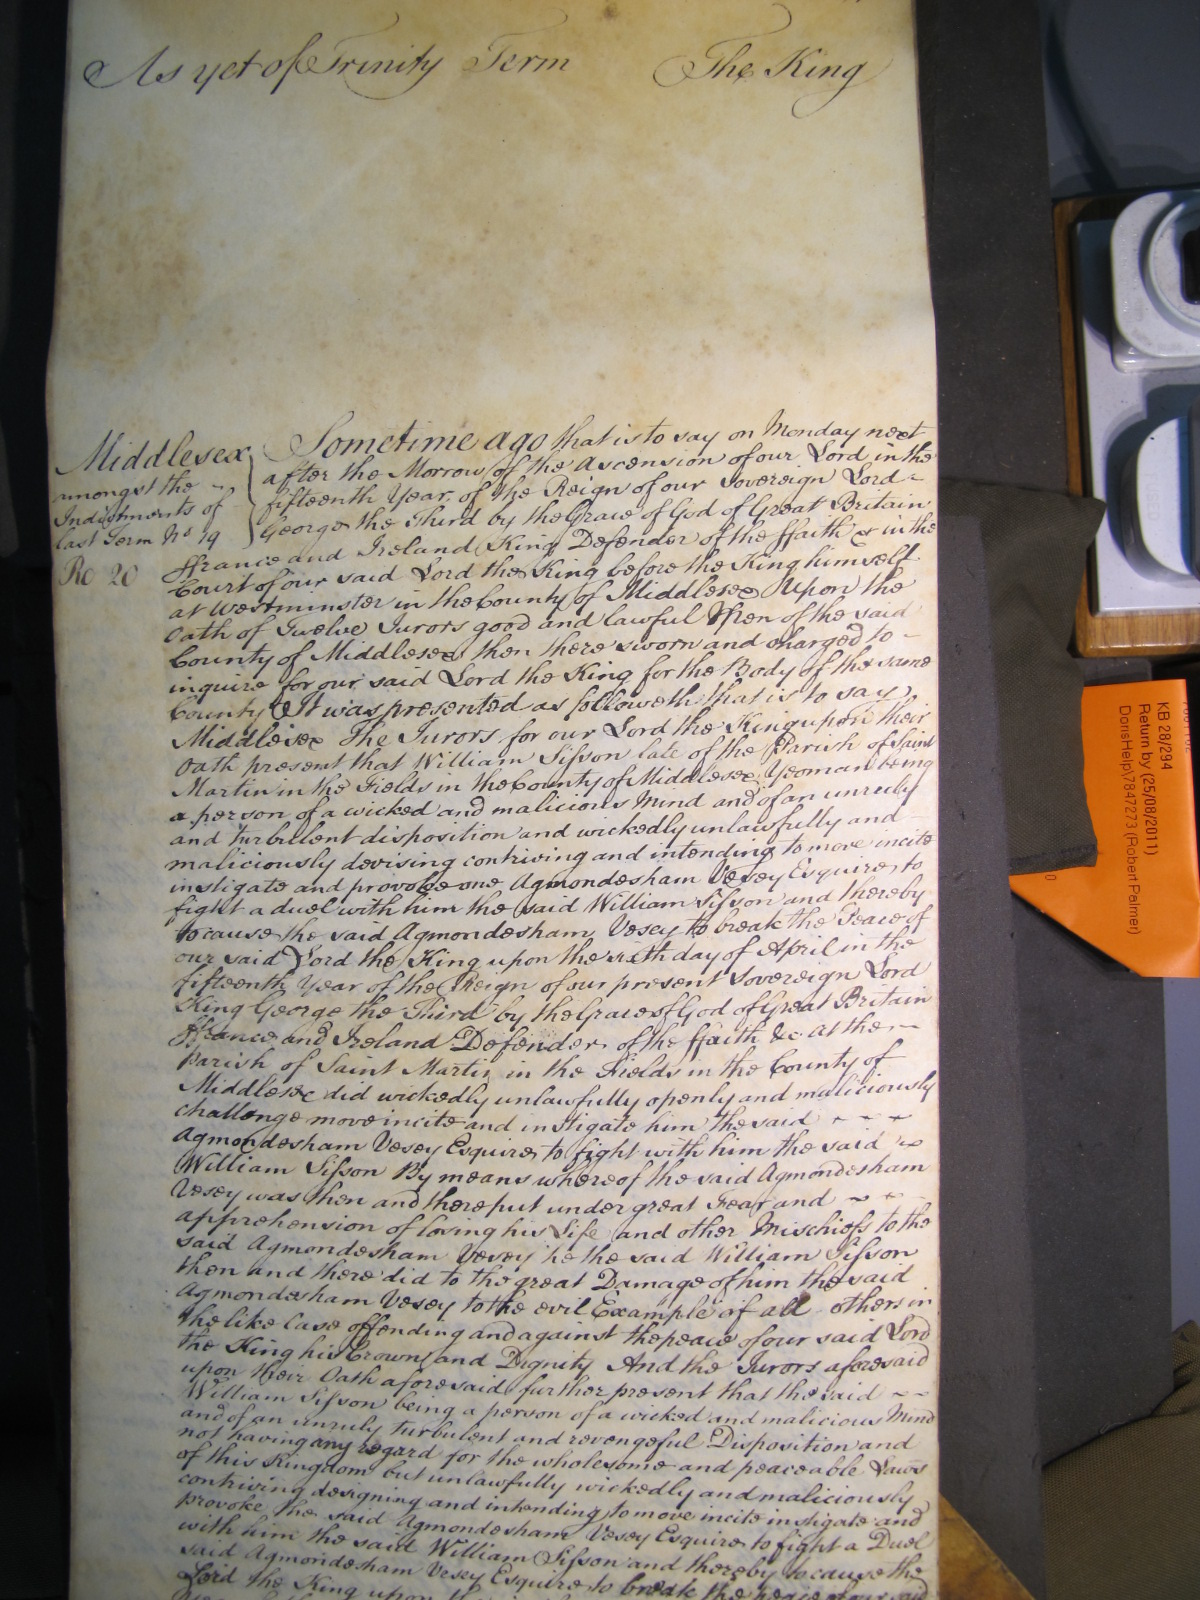 As yet of Trinity Term The King
Middlesex
amongst the
Indictments of
last Term No 19
Ro 20
Sometime ago that is to say on Monday next
after the Morrow of the Ascension of our Lord in the
fifteenth Year of the Reign of our Sovereign Lord
George the Third by the Grace of God of Great Britain
ffrance and Ireland King Defender of the ffaith &c in the
Court of our said Lord the King before the King himself
at Westminster in the County of Middlesex Upon the
Oath of Twelve Jurors good and lawful Men of the said
County of Middlesex then there sworn and charged to
inquire for our said Lord the King for the Body of the same
County It was presented as followeth that is to say
Middlesex The Jurors for our Lord the King upon their
Oath present that William Sisson late of the Parish of Saint
Martin in the Fields in the County of Middlesex Yeoman being
a person of a wicked and malicious Mind and of an unruly
and turbulent disposition and wickedly unlawfully and
maliciously devising contriving and intending to move incite
instigate and provoke one Agmondesham Vesey Esquire to
fight a duel with him the said William Sisson and thereby
to cause the said Agmondesham Vesey to break the Peace of
our said Lord the King upon the sixth day of April in the
fifteenth Year of the Reign of our present Sovereign Lord
King George the Third by the Grace of God of Great Britain
ffrance and Ireland Defender of the ffaith &c At the
Parish of Saint Martin in the Fields in the County of
Middlesex did wickedly unlawfully openly and maliciously
challenge move incite and instigate him the said
Agmondesham Vesey Esquire to fight with him the said
William Sisson By means whereof the said Agmondesham
Vesey was then and there put under great Fear and
apprehension of losing his Life and other Mischiefs to the
said Agmondesham Vesey he the said William Sisson
then and there did to the great Damage of him the said
Agmondesham Vesey to the evil Example of all others in
the like Case offending and against the peace of our said Lord
the King his Crown and Dignity And the Jurors aforesaid
upon their Oath aforesaid further present that the said
William Sisson being a person of a wicked and malicious Mind
and of an unruly turbulent and revengeful Disposition and
not having any regard for the wholesome and peaceable Laws
of this Kingdom but unlawfully wickedly and maliciously
contriving designing and intending to move incite instigate and
provoke the said Agmondesham Vesey Esquire to fight a Duel
with him the said William Sisson and thereby to cause the
said Agmondesham Vesey Esquire to break the peace of our said
Lord the King upon
KB 28/294
Return by (25/08/2011)
DorisHelp\7847273 (Robert Palmer)